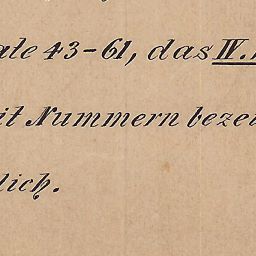 ate 43-61, das IV.
it Nummern bezei
lich.